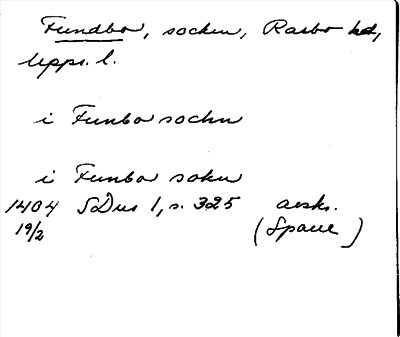 Fundbo, socken, Rasbo hd,
Upps. l.
i Funbo sochn
i Funbo sokn
1404 SDns 1, s. 325 avskr.
19/2 (Spaue)